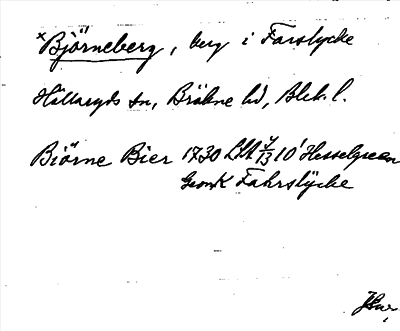 ×Björneberg, berg i Farslycke
Hällaryds sn, Bräkne hd, Blek. l.
Biörne Bier 1730 LSA J/13 10¹ Hesselgreen
Geom K Fahrslÿcke